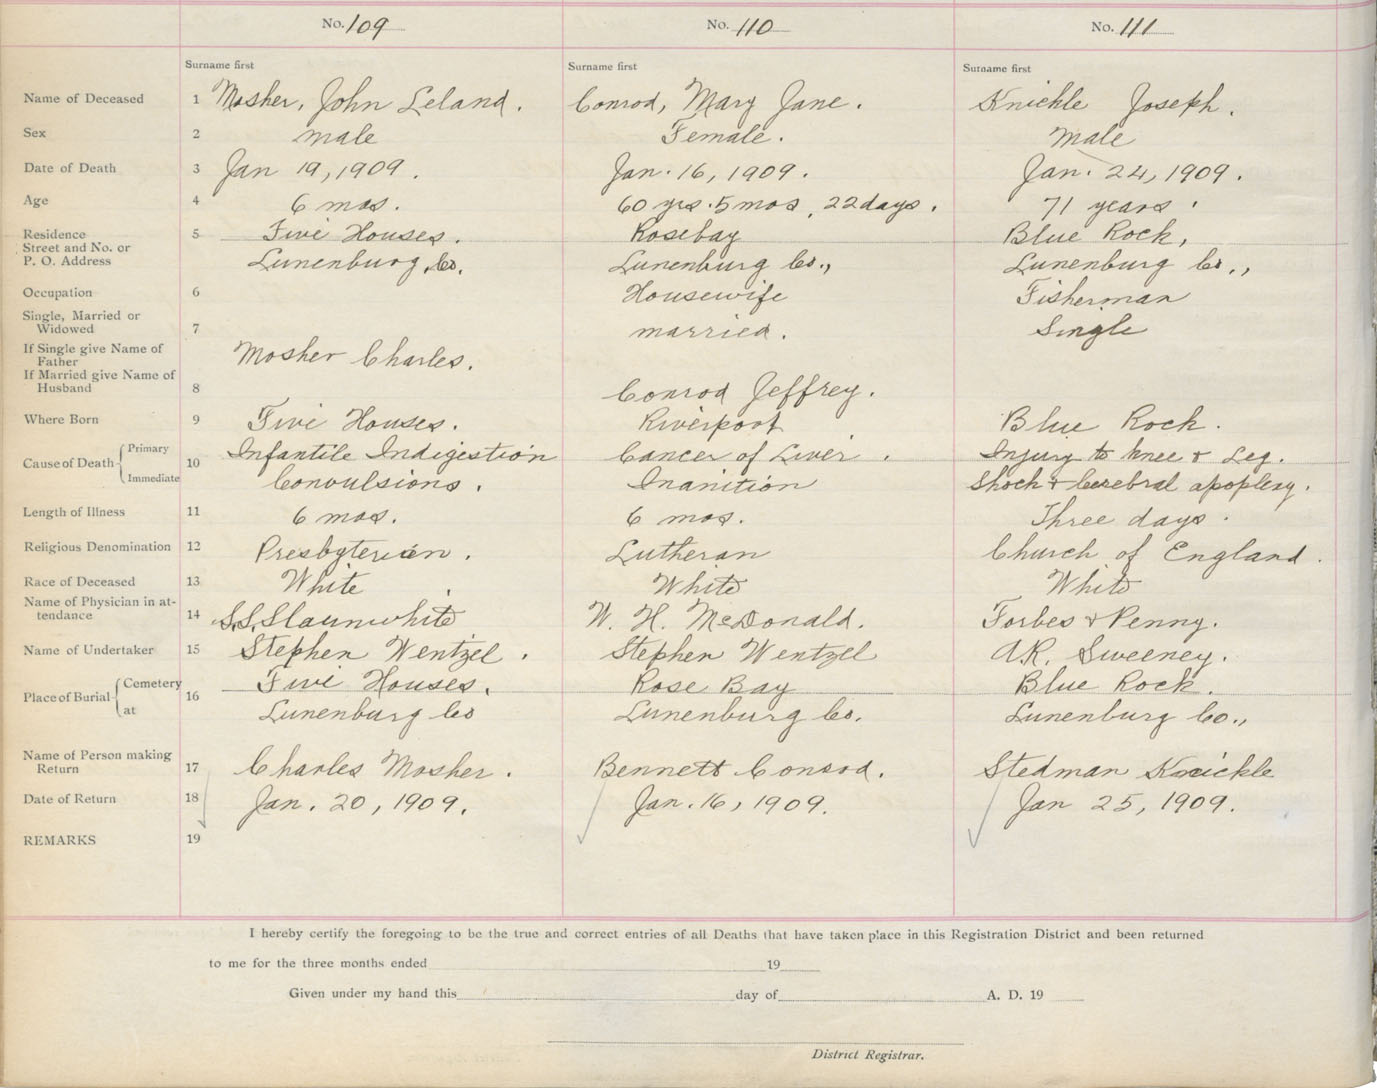 No. 109 No. 110 No. 111
Surname first Surname first Surname first
Name of Deceased 1 Mosher, John Leland. Conrod, Mary Jane. Knickle Joseph.
Sex 2 male Female. Male
Date of Death 3 Jan 19, 1909. Jan. 16, 1909. Jan. 24, 1909.
Age 4 6 mos. 60 yrs. 5 mos, 22 days. 71 years.
Residence 5 Five Houses. Rosebay Blue Rock,
Street and No. or
P. O. Address Lunenburg, Co. Lunenburg Co., Lunenburg Co.,
Occupation 6 Housewife Fisherman
Single, Married or
Widowed 7 married. Single
If Single give Name of
Father Mosher Charles.
If Married give Name of
Husband 8 Conrod Jeffrey.
Where Born 9 Five Houses. Riverport Blue Rock.
Cause of Death Primary 10 Infantile Indigestion Cancer of Liver. Injury to knee & Leg.
Immediate Convulsions. Inanition Shock & Cerebral apoplexy.
Length of Illness 11 6 mos. 6 mos. Three days.
Religious Denomination 12 Presbyterian. Lutheran Church of England.
Race of Deceased 13 White White White
Name of Physician in at-
tendance 14 S.S. Slaunwhite W. H. McDonald. Forbes & Penny.
Name of Undertaker 15 Stephen Wentzel. Stephen Wentzell A.R. Sweeney.
Place of Burial Cemetery 16 Five Houses. Rose Bay Blue Rock.
at Lunenburg Co Lunenburg Co. Lunenburg Co.,
Name of Person making
Return 17 Charles Mosher. Bennett Conrod. Stedman Knickle
Date of Return 18 Jan. 20, 1909. Jan. 16, 1909. Jan 25, 1909.
REMARKS 19
I hereby certify the foregoing to be the true and correct entries of all Deaths that have taken place in this Registration District and been returned
to me for the three months ended 19
Given under my hand this day of A. D. 19
District Registrar.